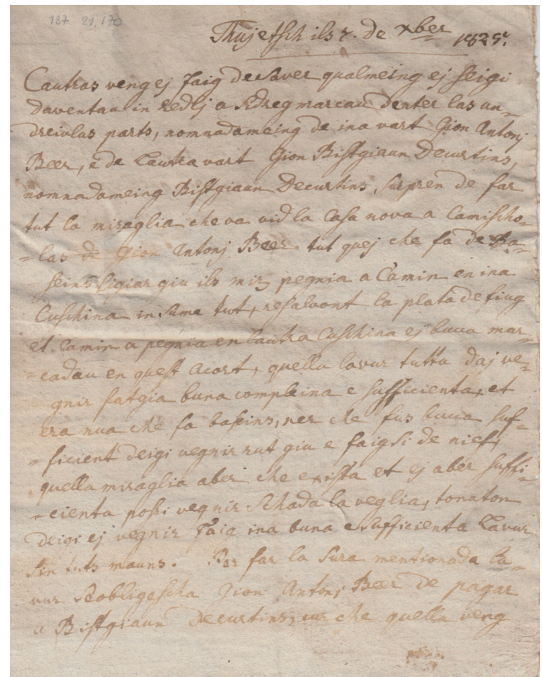 187 21,170
Thujetsch ils 7. de Xber 1825.
Cautras veng ej faig de saver qualmeing ej seigi
daventau in Ledlj a Adreg marcau denter las un-
dreivlas parts, nomnadameing de ina vart Gion Antonj
Beer, e de Lautra vart Gion Bistgiaun Decurtins,
nomnadameing Bistgiaun Decurtins, surpren de far
tut la miraglia che va vid la Casa nova a Camischo-
-las Gion Antonj Beer tut quej che fa de ba-
seins ligiar giu ils mirs pegnia a Camin en ina
Cuschina in Suma tut, resalvont la plata de fiug
et Camin a pegnia en Lautra Cuschina ej bucca mar-
-cadau en quest acort, quella lavur tutta daj ve-
gnir fatgia buna compleina e sufficienta, et
era nua che fa basins, ner che fus bucca suf-
ficient deigi vegnir rut giu e faig si de nief,
quella miraglia aber che exista et ej aber suffi-
-cienta posi vegnir schada la veglia, tonaton
deigi ej vegnir faig ina buna e sufficienta Lavur
sin tuts mauns. Per far la sura mentionada la-
vur Sobligescha Gion Antonj Beer de pagar
a Bistgiaun Decurtins, cur che quella veng